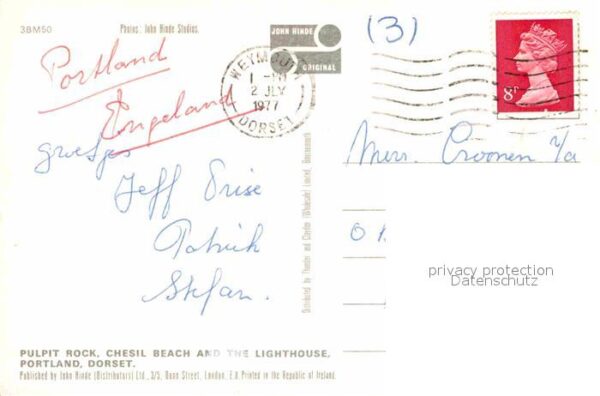 3BM50
Photos: John Hinde Studios.
JOHN HINDE
ORIGINAL
(3)
WEYMOUTH
2 JLY
1977
DORSET
8P
Portland
Engeland
groetjes
Jeff
Patrick
Stefan.
Merr. Croonen
O
privacy protection
Datenschutz
Distributed by Thunder and Clayden (Wholesale) Limited, Bournemouth
PULPIT ROCK, CHESIL BEACH AND THE LIGHTHOUSE,
PORTLAND, DORSET.
Published by John Hinde (Distributors) Ltd., Dean Street, London, Printed in the Republic of Ireland.